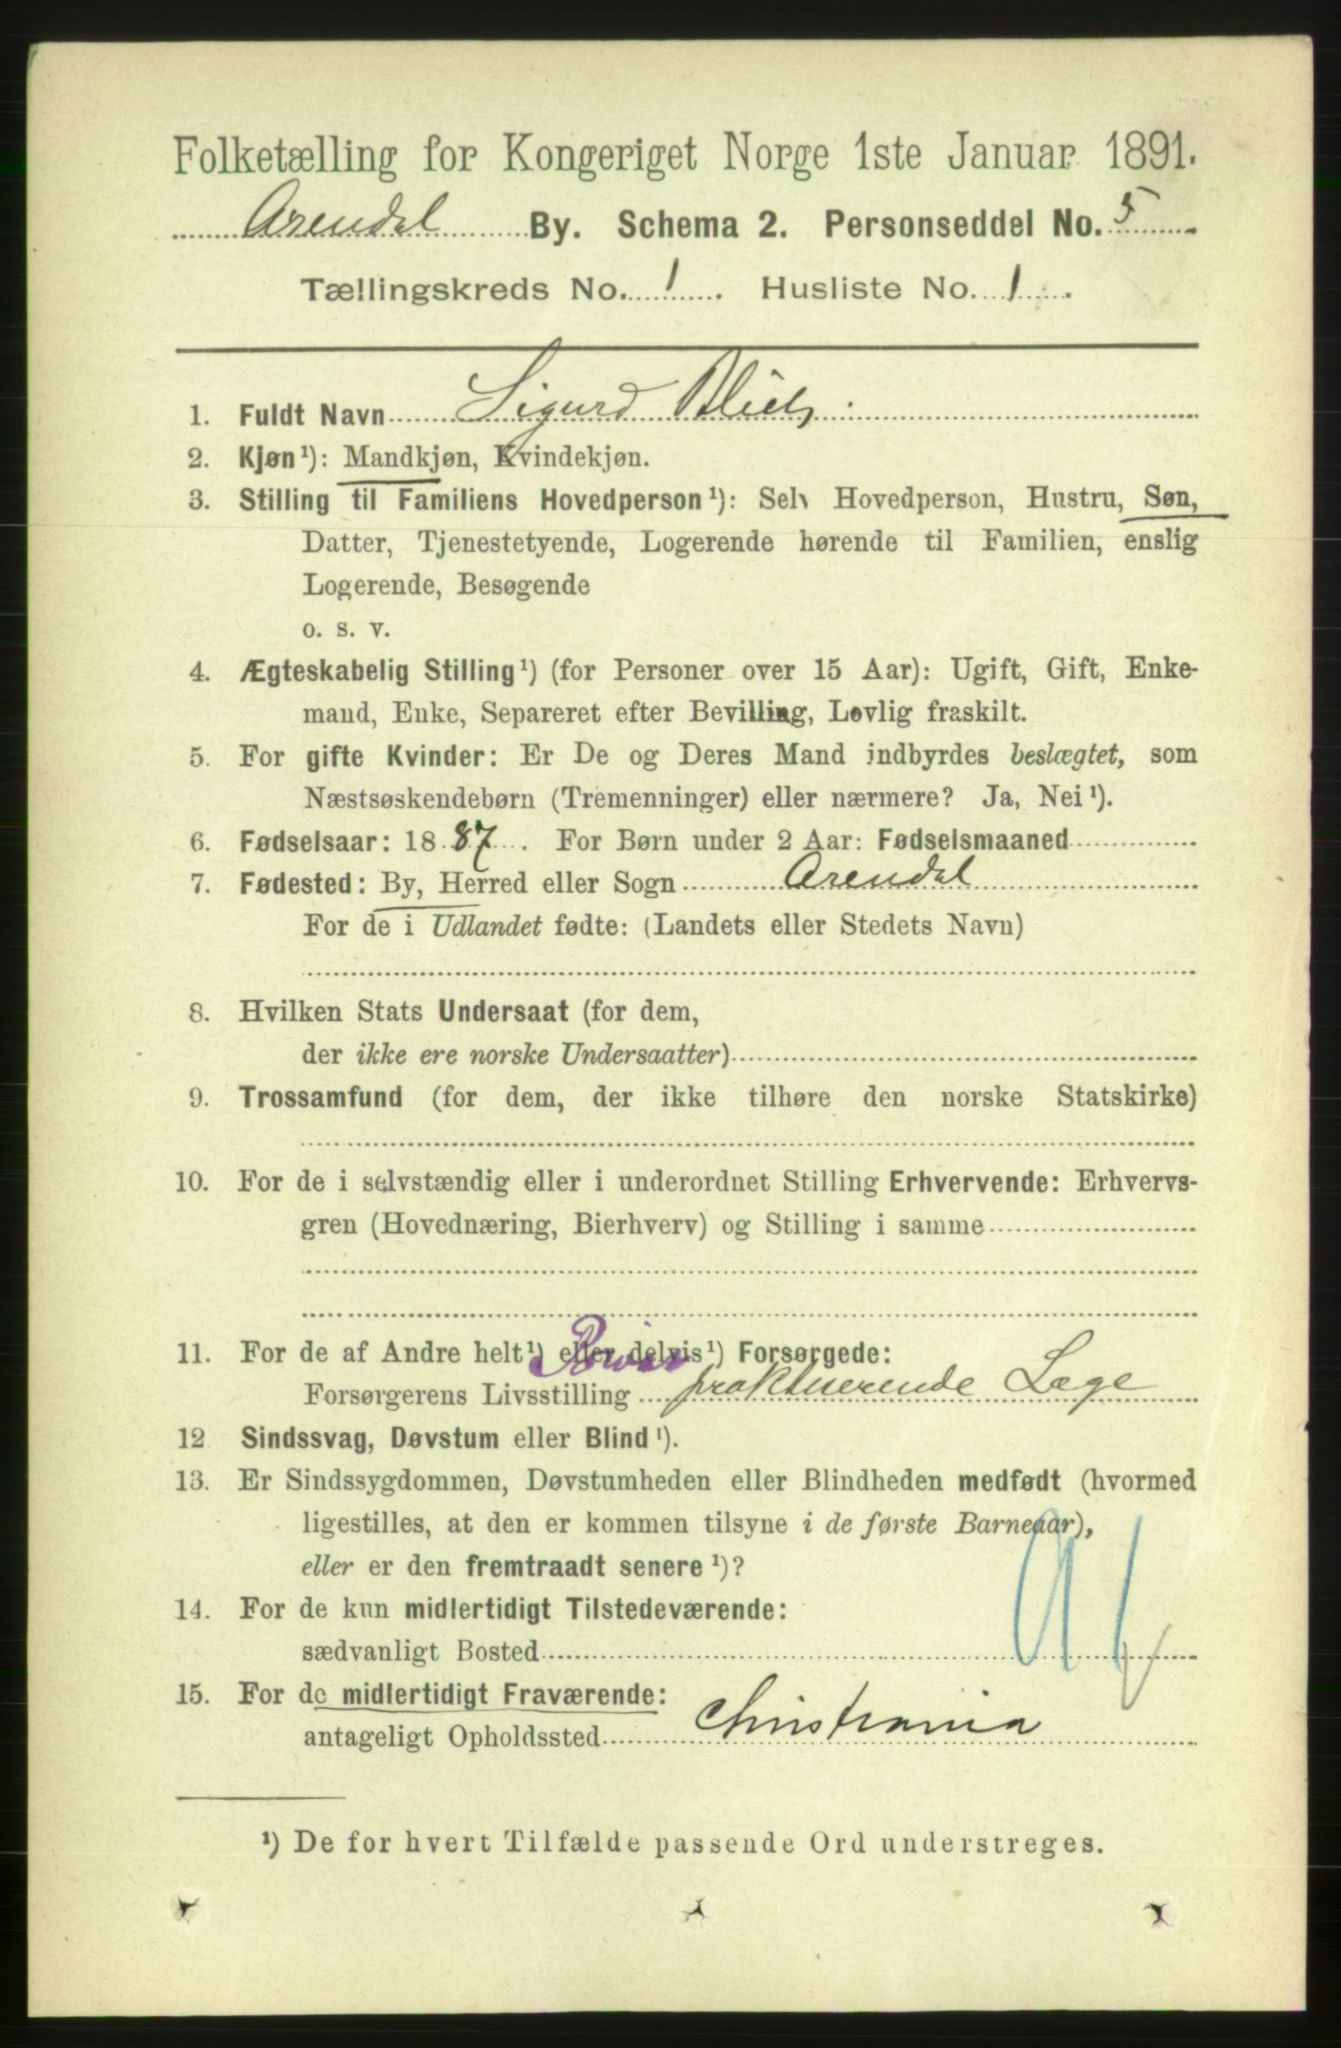 Folketælling for Kongeriget Norge 1ste Januar 1891.
Arendal By. Schema 2. Personseddel No. 5
Tællingskreds No. 1. Husliste No. 1.
1. Fuldt Navn Sigurd
2. Kjøn¹): Mandkjøn, Kvindekjøn.
3. Stilling til Familiens Hovedperson¹): Selv Hovedperson, Hustru, Søn,
Datter, Tjenestetyende, Logerende hørende til Familien, enslig
Logerende, Besøgende
o. s. v.
4. Ægteskabelig Stilling¹) (for Personer over 15 Aar): Ugift, Gift, Enke-
mand, Enke, Separeret efter Bevilling, Lovlig fraskilt.
5. For gifte Kvinder: Er De og Deres Mand indbyrdes beslægtet, som
Næstsøskendebørn (Tremenninger) eller nærmere? Ja, Nei¹).
6. Fødselsaar: 1887. For Børn under 2 Aar: Fødselsmaaned
7. Fødested: By, Herred eller Sogn Arendal
For de i Udlandet fødte: (Landets eller Stedets Navn)
8. Hvilken Stats Undersaat (for dem,
der ikke ere norske Undersaatter)
9. Trossamfund (for dem, der ikke tilhøre den norske Statskirke)
10. For de i selvstændig eller i underordnet Stilling Erhvervende: Erhvervs-
gren (Hovednæring, Bierhverv) og Stilling i samme
11. For de af Andre helt¹) eller delvis¹) Forsørgede:
Forsørgerens Livsstilling praktiserende Læge
12 Sindssvag, Døvstum eller Blind¹).
13. Er Sindssygdommen, Døvstumheden eller Blindheden medfødt (hvormed
ligestilles, at den er kommen tilsyne i de første Barneaar),
eller er den fremtraadt senere¹)?
14. For de kun midlertidigt Tilstedeværende:
sædvanligt Bosted
15. For de midlertidigt Fraværende:
antageligt Opholdssted Christiania
¹) De for hvert Tilfælde passende Ord understreges.